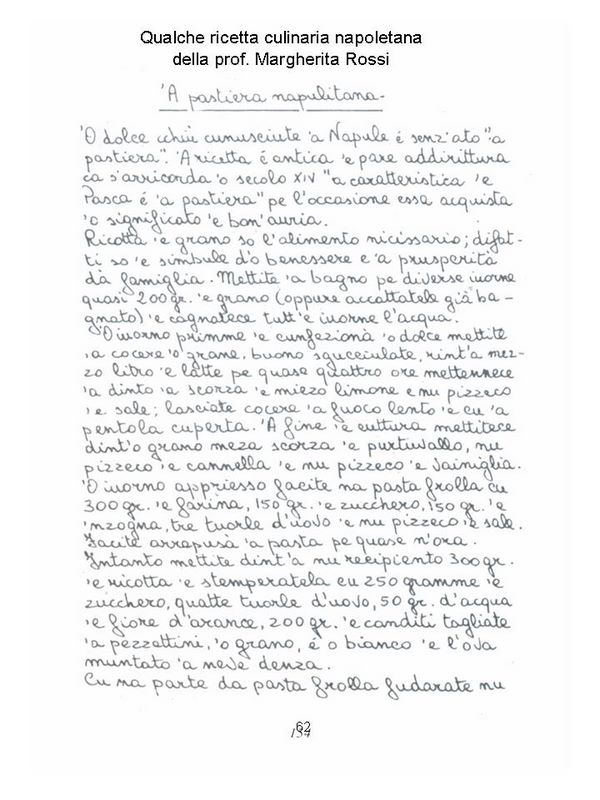 Qualche ricetta culinaria napoletana
della prof. Margherita Rossi
'A pastiera napulitana-
'O dolce cchiù cunusciute 'a Napule é senz'ato "a
pastiera". 'A ricetta é antica 'e pare addirittura
ca s'arricorda 'o secolo XIV "a caratteristica 'e
Pasca é 'a pastiera" pe l'occasione essa acquista
'o significato 'e bon'auria.
Ricotta 'e grano so l'alimento nicissario; difat-
ti so 'e simbule d'o benessere e 'a prusperità
dà famiglia. Mettite 'a bagno pe diverse iuorne
quasi 200 gr. 'e grano (oppure accattatele già ba-
gnato) 'e cagnatece tutt'e iuorne l'acqua.
'O iuorno primme 'e cunfezionà 'o dolce mettite
'a cocere 'o' grane. buono sgucciulate, rint'a mez-
zo litro 'e latte pe quase quattro ore mettennece
'a dinto 'a scorza 'e miezo limone e nu pizzeco
'e sale; lasciate cocere 'a fuoco lento 'e cu 'a
pentola cuperta. 'A fine 'e cuttura mettitece
dint'o grano meza scorza 'e purtuvallo, nu
pizzeco 'e cannella 'e nu pizzeco 'e vainiglia.
'O iuorno appriesso facite na pasta frolla cu
300 gr. 'e farina, 150 gr. 'e zucchero, 150 gr. 'e
'nzogna, tre tuorle d'uovo 'e nu pizzeco 'e sale.
Facite arrapusà 'a pasta pe quase n'ora.
Intanto mettite dint'a nu recipiento 300 gr.
'e ricotta 'e stemperatela cu 250 gramme 'e
zucchero, quatte tuorle d'uovo, 50 gr. d'acqua
'e fiore d'arance, 200 gr. 'e canditi tagliate
'a pezzettini, 'o grano, é o bianco 'e l'ova
muntato 'a neve denza.
Cu na parte da pasta frolla fudarate nu
62